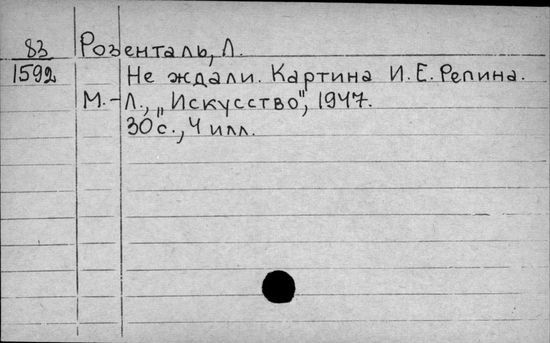 83 Розенталь, Л.
1592 Не ждали. Картина И.Е. Репина.
М.-Л., „Искусство", 1947.
30с., 4 илл.